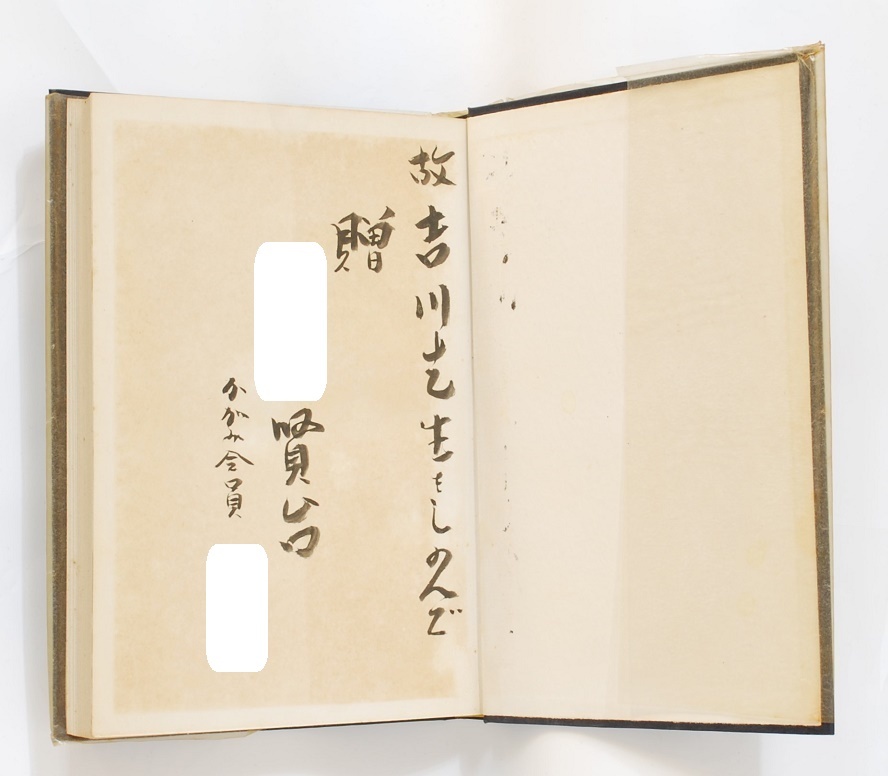 故吉川先生をしのんで
贈
賢台
かがみ会員